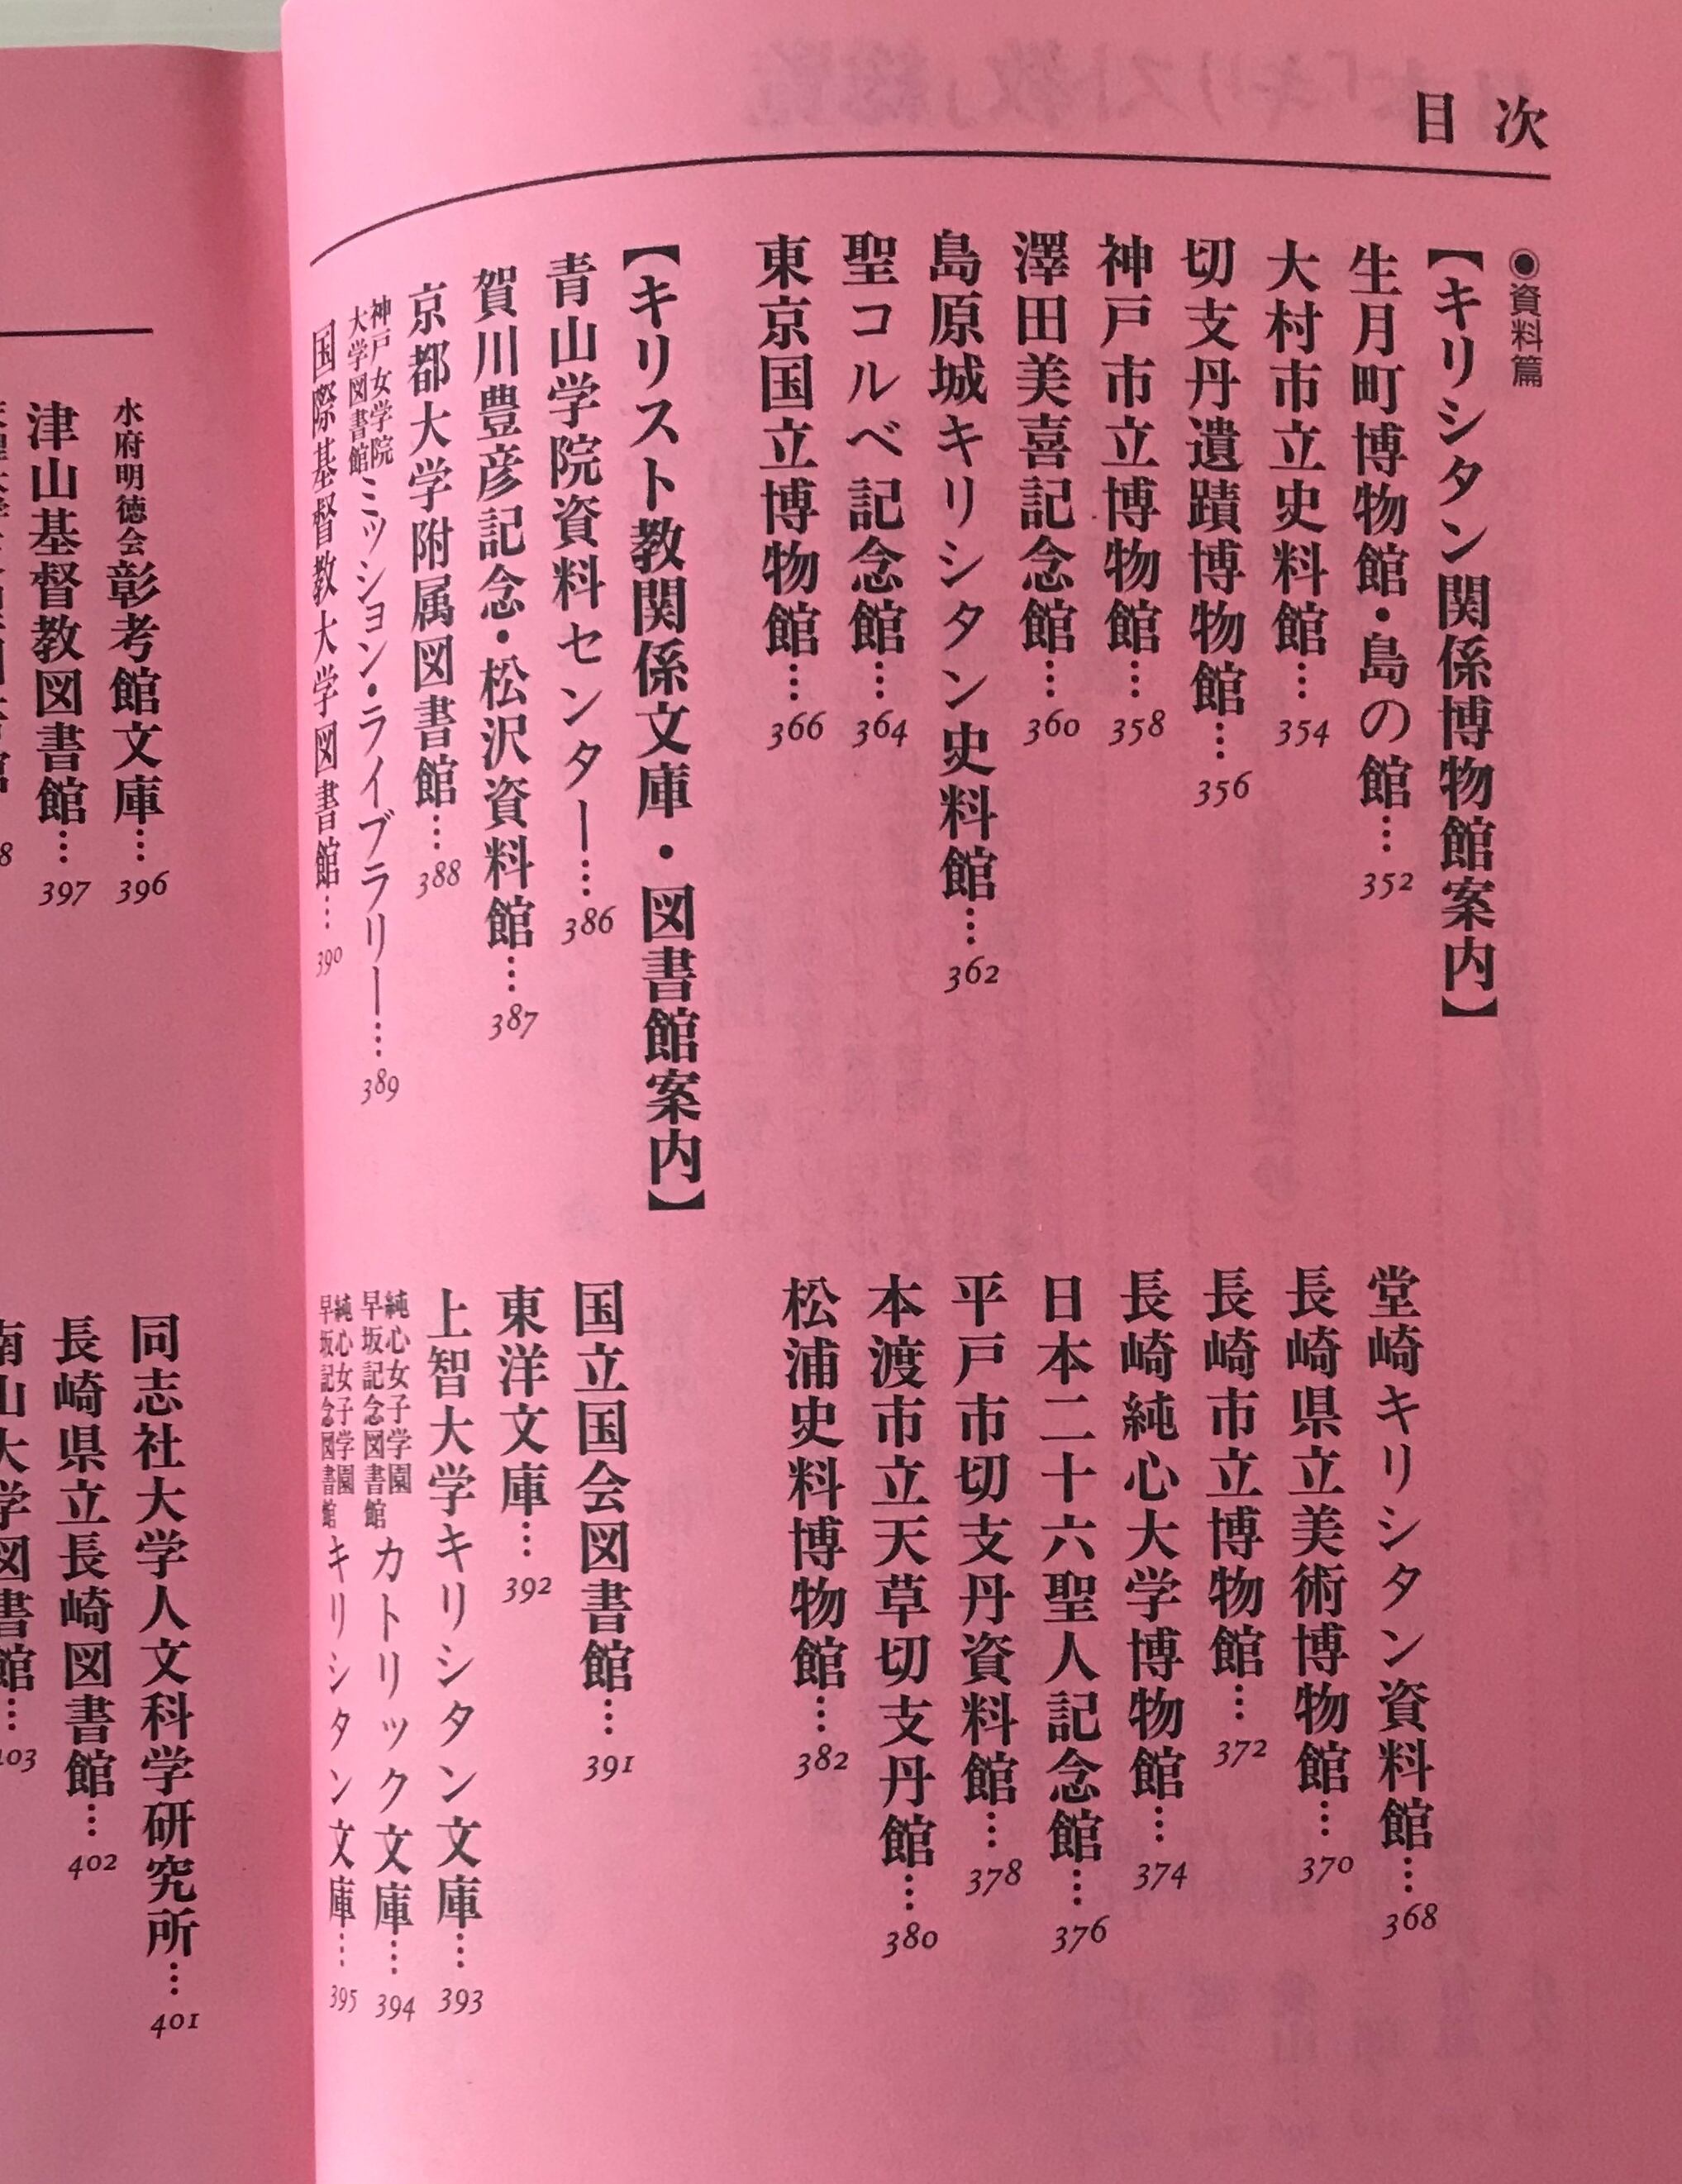 目次
◉資料篇
【キリシタン関係博物館案内】
生月町博物館・島の館…352
大村市立史料館…354
切支丹遺蹟博物館…356
神戸市立博物館…358
澤田美喜記念館…360
島原城キリシタン史料館…362
聖コルベ記念館…364
東京国立博物館…366
堂崎キリシタン資料館…368
長崎県立美術博物館…370
長崎市立博物館…372
長崎純心大学博物館…374
日本二十六聖人記念館…376
平戸市切支丹資料館…378
本渡市立天草切支丹館…380
松浦史料博物館…382
【キリスト教関係文庫・図書館案内】
青山学院資料センター…386
賀川豊彦記念・松沢資料館…387
京都大学附属図書館…388
神戸女学院大学図書館ミッション・ライブラリー…389
国際基督教大学図書館…390
国立国会図書館…391
東洋文庫…392
上智大学キリシタン文庫…393
純心女子学園早坂記念図書館カトリック文庫…394
純心女子学園早坂記念図書館キリシタン文庫…395
水府明徳会彰考館文庫…396
津山基督教図書館…397
同志社大学人文科学研究所…401
長崎県立長崎図書館…402
南山大学図書館…403